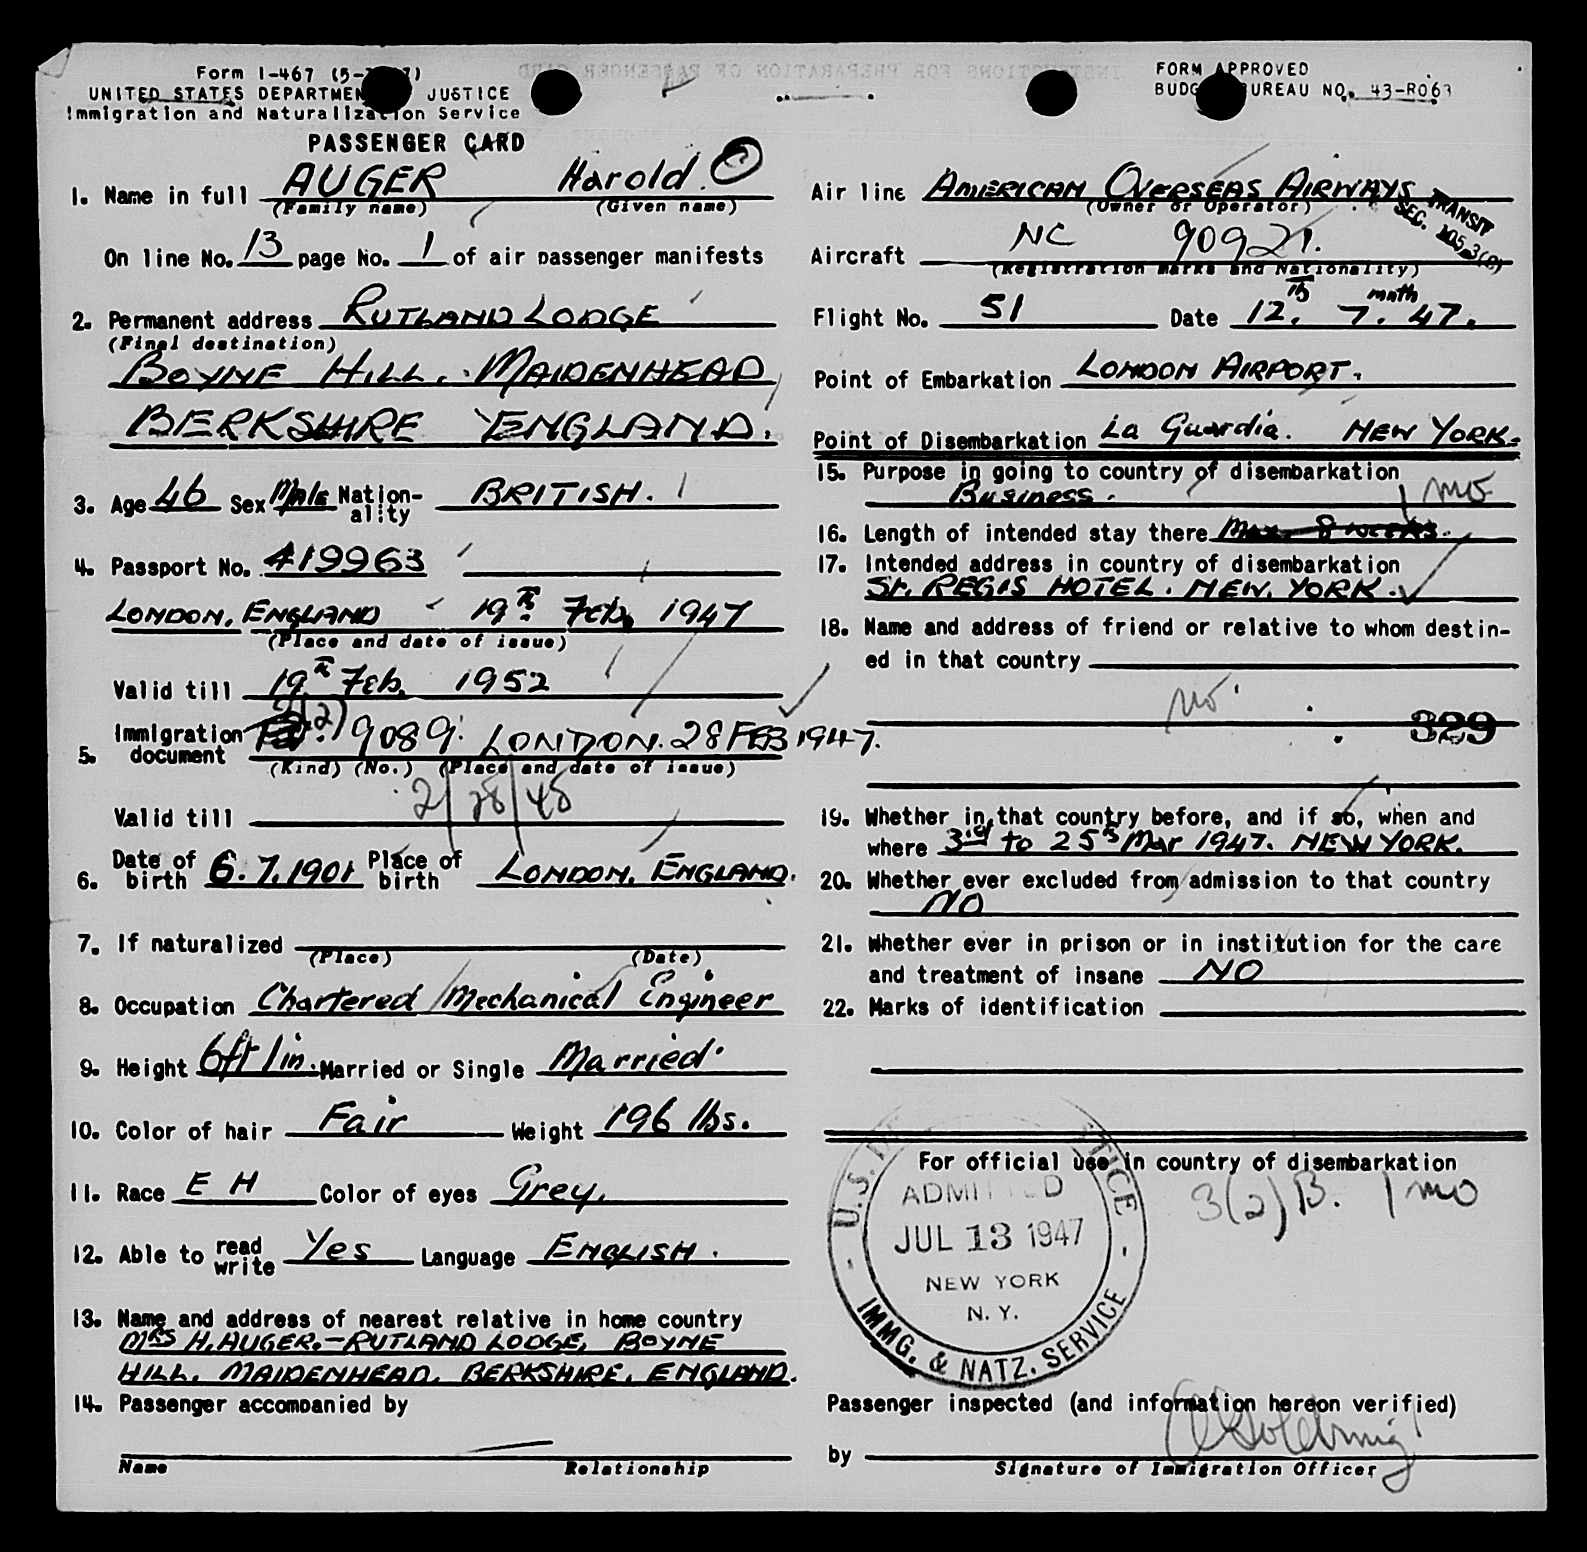 Form I-467
UNITED STATES DEPARTMENT JUSTICE
Immigration and Naturalization Service
PASSENGER CARD
1. Name in full AUGER Harold.
(Family name) (Given name)
On line No. 13 page No. 1 of air passenger manifests
2. Permanent address RUTLAND LODGE
(Final destination)
BOYNE HILL. MAIDENHEAD
BERKSHIRE ENGLAND.
3. Age 46 Sex Male Nation-ality BRITISH.
4. Passport No. 419963
LONDON, ENGLAND 19th Feb. 1947
(Place and date of issue)
Valid till 19th Feb. 1952
3(2)
5. Immigration document 9089. LONDON. 28 FEB 1947.
(Kind) (No.) (Place and date of issue)
Valid till 2/28/48
6. Date of birth 6.7.1901 Place of birth LONDON, ENGLAND.
7. If naturalized
(Place) (Date)
8. Occupation Chartered Mechanical Engineer
9. Height 6ft 1in. Married or Single Married.
10. Color of hair Fair Weight 196 lbs.
11. Race E H Color of eyes Grey.
12. Able to read write Yes Language ENGLISH.
13. Name and address of nearest relative in home country
MRS H. AUGER. - RUTLAND LODGE, BOYNE
HILL, MAIDENHEAD, BERKSHIRE, ENGLAND.
14. Passenger accompanied by
Name Relationship
FORM APPROVED
BUDG UREAU NO. 43-R063
Air line AMERICAN OVERSEAS AIRWAYS
(Owner or Operator)
TRANSIT
SEC.
Aircraft NC 90921.
(Registration marks and Nationality)
Flight No. 51 Date 12th. 7 mnth. 47.
Point of Embarkation LONDON AIRPORT.
Point of Disembarkation La Guardia. NEW YORK.
15. Purpose in going to country of disembarkation
Business. 1 mo
16. Length of intended stay there Max. 8 weeks.
17. Intended address in country of disembarkation
ST. REGIS HOTEL. NEW YORK.
18. Name and address of friend or relative to whom destin-
ed in that country
no
329
19. Whether in that country before, and if so, when and
where 3rd to 25th Mar 1947. NEW YORK.
20. Whether ever excluded from admission to that country
NO
21. Whether ever in prison or in institution for the care
and treatment of insane NO
22. Marks of identification
For official use in country of disembarkation
3(2)B. 1 mo
ADMITTED
JUL 13 1947
NEW YORK
N. Y.
IMMG. & NATZ. SERVICE
Passenger inspected (and information hereon verified)
by
Signature of Immigration Officer